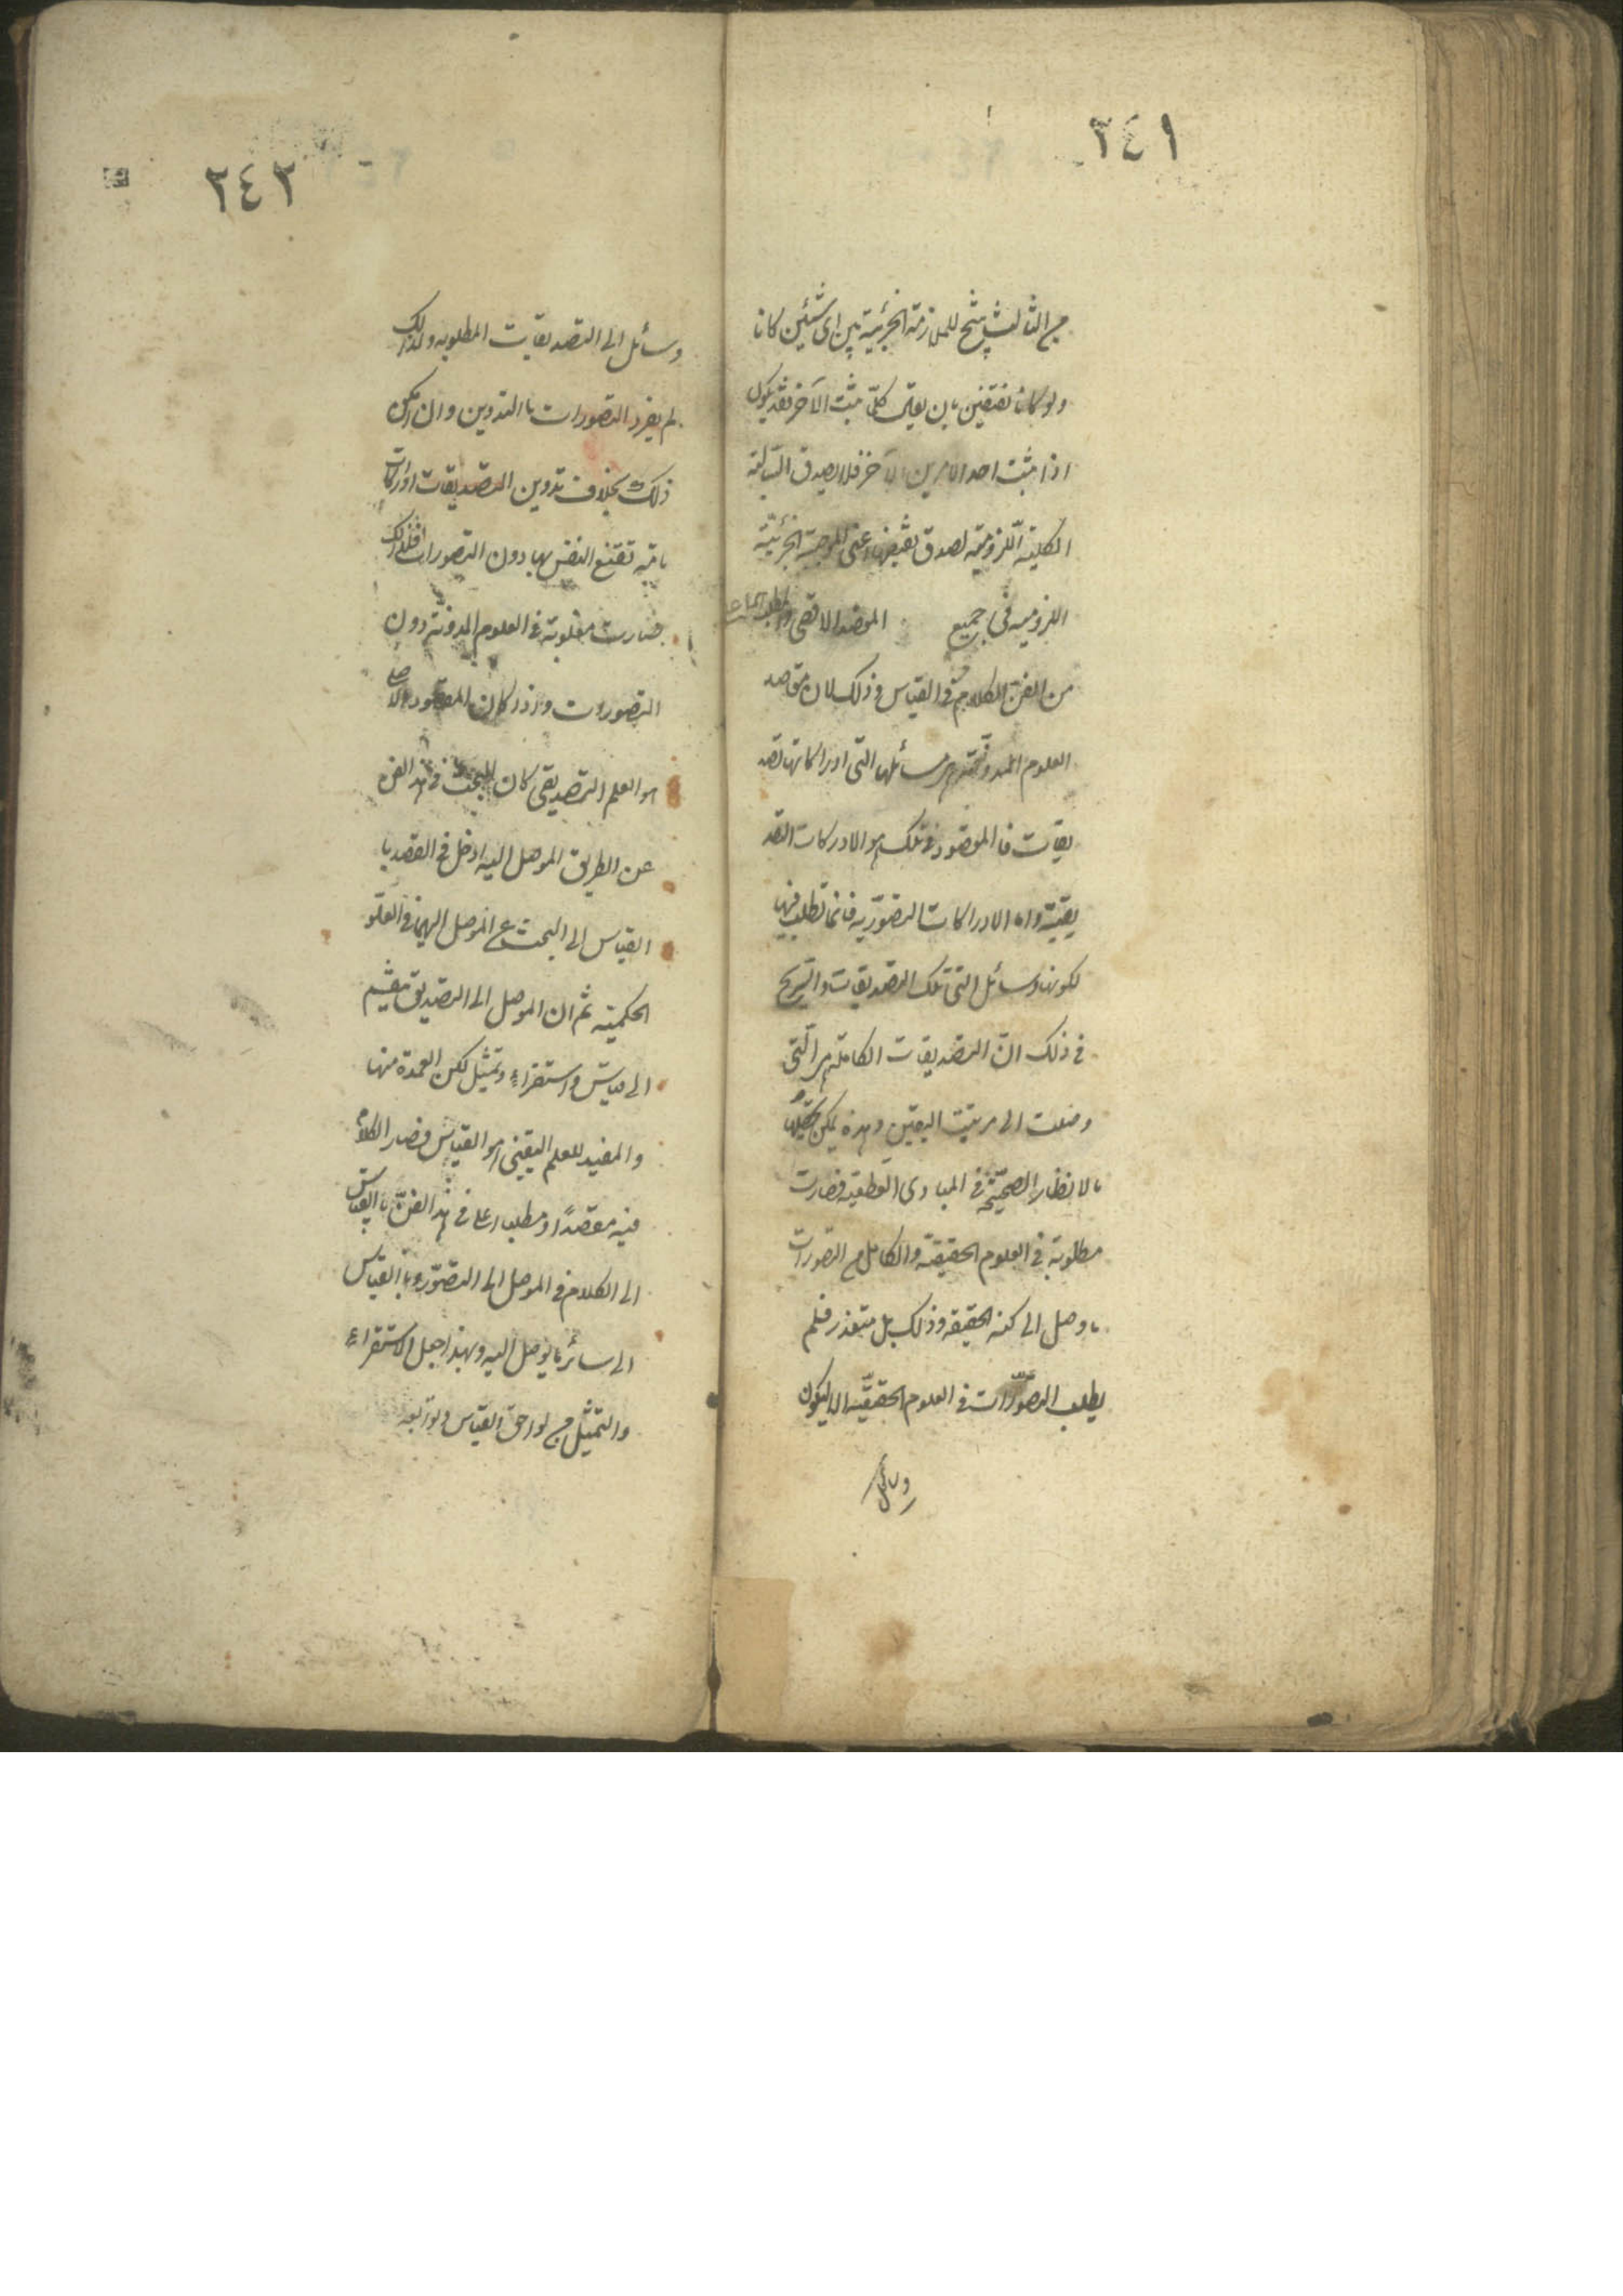 ٢٤١
من الثالث ينتج للملازمة الجزئية بين اى شيئين كانا
ولو كانا نقيضين بان يقال كلّما ثبت الآخر فقد يكون
اذا ثبت احد الامرين الآخر فلا يصدق السّالبة
الكلية اللّزومية لصدق نقيضها اعنى الموجبة الجزئيّة
اللزوميه فى جميع المقصد الاقصى والمطلب
من الفن الكلام فى القياس وذلك لان مقاصد
العلوم المدونة هى مسائلها التى ادراكاتها تصد
يقات فالمقصود فى تلك هو الادركات التصد
يقيّة واما الادراكات التصوّريه فانما تطلب فيها
لكونها وسائل الى تلك التصديقات والسّر
فى ذلك انّ التصديقات الكاملة هى الّتى
وصلت الى مرتبت اليقين وهذه يمكن تحصيلها
بالانظار الصحيحة فى المبادى القطعيه فصارت
مطلوبة فى العلوم الحقيقة والكامل من التصورات
ما وصل الى كنه الحقيقه وذلك بل متعذر فلم
يطلب التصوّرات فى العلوم الحقيقيّه الا ليكون
وسائل
٢٤٢
وسائل الى التصديقات المطلوبه ولذلك
لم يفرد التصورات باالتدوين وان امكن
ذلك بخلاف تدوين التصديقات ادراكات
تامّة تقتنع النفس بها دون التصورات فلذلك
صارت مطلوبة فى العلوم المدونة دون
التصورات واذا كان المقصود الاصلى
هو العلم التصديقى كان البحث فى هذا الفن
عن الطريق الموصل اليه ادخل فى القصد با
القياس الى البحث عن الموصل اليها فى العلو
الحكميه ثم ان الموصل الى التصديق ينقسم
الى قياس واستقراء وتمثيل لكن العمدة منها
والمفيد للعلم اليقينى هو القياس فصار الكلام
فيه مقصدًا ومطلبا اعلى فى هذا الفنّ باالقياس
الى الكلام فى الموصل الى التصوّر وباالقياس
الى سائر ما يوصل اليه ولهذا جعل الاستقراء
والتمثيل من لواحق القياس وتوابعه